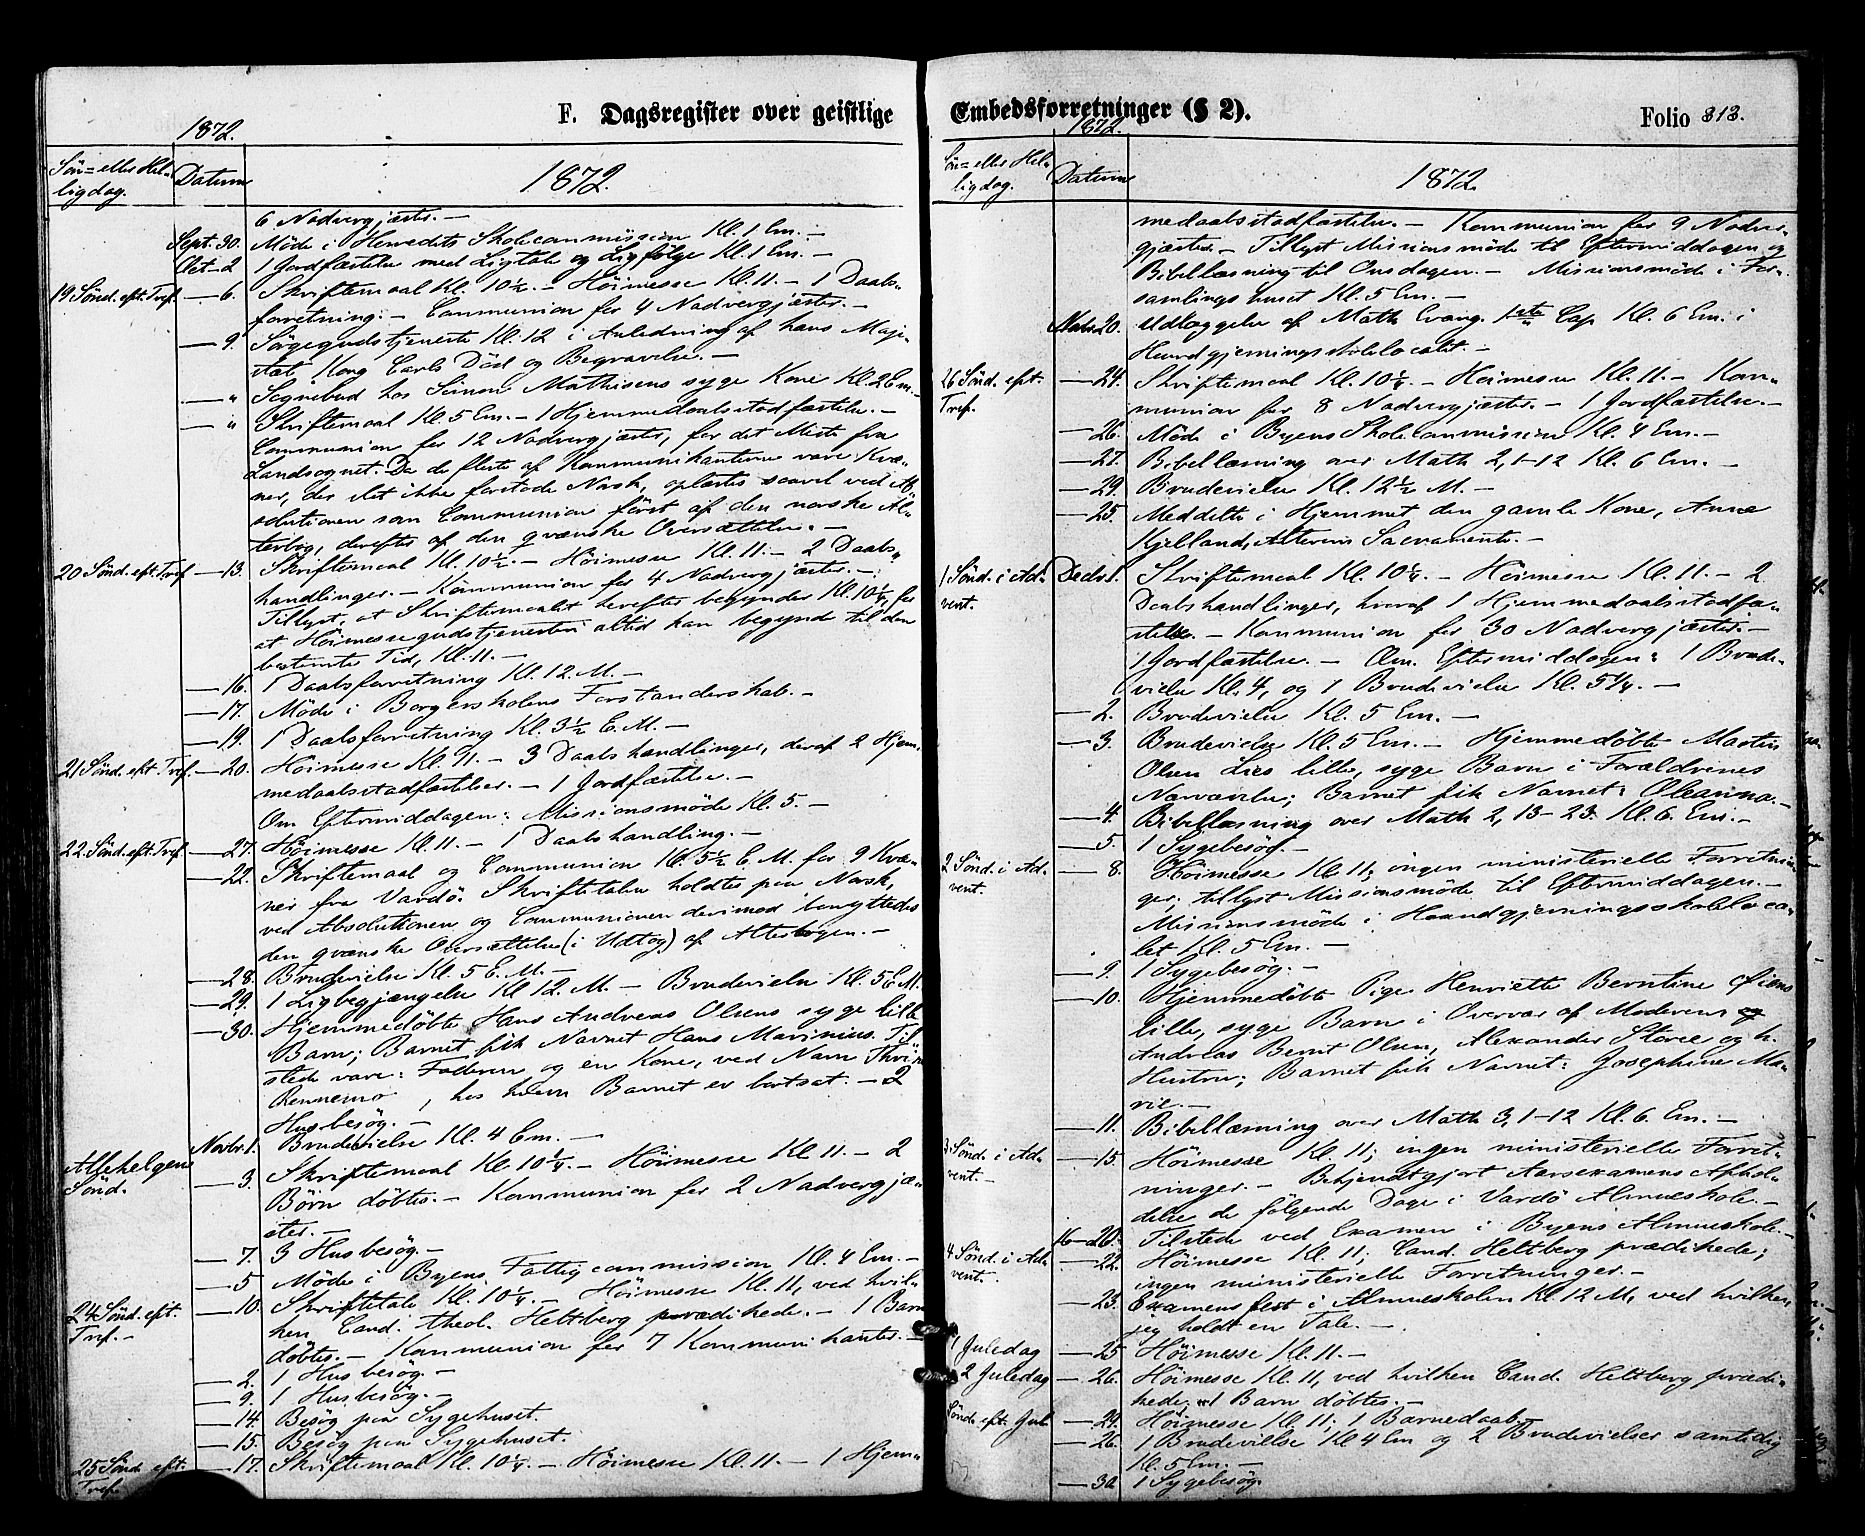 F. Dagsregister over geistlige
1872.
Søn= eller Hel-
ligdag.
Datum
1872.
6 Nadvergjæster. —
Sept. 30. Möde i Herredets Skolecommission Kl. 1 Em. —
Oct. 2 1 Jordfæstelse med Ligtale og Ligfølge Kl. 1 Em. —
19 Sönd. eft. Tref. — 6. Skriftemaal Kl. 10½. — Höimesse Kl. 11. — 1 Daabs-
forretning. — Communion for 4 Nadvergjæster. —
— 9. Sörgegudstjeneste Kl. 12 i Anledning af hans Maje-
stæt Kong Carls Död og Begravelse. —
— " Sognebud hos Simon Mathisens syge Kone Kl. 2 Em. —
— " Skriftemaal Kl. 5 Em. — 1 Hjemmedaabsstadfæstelse. —
Communion for 12 Nadvergjæster, for det Meste fra
Landsognet. Da de fleste af Kommunikanterne vare Kvæ-
ner, der slet ikke forstode Norsk, oplæstes saavel ved Ab-
solutionen som Communion först af den norske Al-
terbog, derefter af den qvænske Oversættelse. —
20 Sönd. eft. Tref. — 13. Skriftemaal Kl. 10½. — Höimesse Kl. 11. — 2 Daabs-
handlinger. — Kommunion for 4 Nadvergjæster. —
Tillyst, at Skriftemaalet herefter begynder Kl. 10¼, for
at Höimessegudstjenesten altid kan begynde til den
bestemte Tid, Kl. 11. —
— 16. 1 Daabsforretning Kl. 12. M. —
— 17. Möde i Borgerskolens Forstanderskab. —
— 19. 1 Daabsforretning Kl. 3½ E. M. —
21 Sönd. eft. Tref. — 20. Höimesse Kl. 11. — 3 Daabshandlinger, deraf 2 Hjem-
medaabsstadfæstelser. — 1 Jordfæstelse. —
Om Eftermiddagen: Missionsmöde Kl. 5. —
22. Sönd. eft. Tref. — 27. Höimesse Kl. 11. — 1 Daabshandling. —
— 22. Skriftemaal og Communion Kl. 5½ E. M. for 9 Kvæ-
ner fra Vardö. Skriftetalen holdtes paa Norsk,
ved Absolutionen og Communionen derimod benyttedes
den qvænske Oversættelse (i Udtog) af Alterbogen. —
— 28. Brudevielse Kl. 5 E. M. —
— 29. 1 Ligbegjængelse Kl. 12. M. — Brudevielse Kl. 5 E. M.
— 30. Hjemmedöbte Hans Andreas Olsens syge lille
Barn; Barnet fik Navnet Hans Marinius. Til-
stede vare: Faderen og en Kone, ved Navn Thrine
Rennemo, hos hvem Barnet er bortsat. — 2
Husbesög. —
Novbr. 1. Brudevielse Kl. 4 Em. —
Allehelgens
Sönd. — 3. Skriftemaal Kl. 10¼. — Höimesse Kl. 11. — 2
Börn döbtes. — Kommunion for 2 Nadvergjæ-
ster. —
— 7. 3 Husbesög. —
— 5 Möde i Byens Fattigcommission Kl. 4 Em. —
24 Sönd. eft.
Tref. — — 10. Skriftetale Kl. 10¼. — Höimesse Kl. 11, ved hvil-
ken Cand. theol. Heltberg prædikede. — 1 Barn
döbtes. — Kommunion for 7 Kommunikanter. —
— 2. 1 Husbesög. —
— 9. 1 Husbesög. —
— 14. Besög paa Sygehuset.
— 15. Besög paa Sygehuset.
25 Sönd. eft.
Tref. — 17. Skriftemaal Kl. 10¼. — Höimesse Kl. 11. — 1 Hjem-
Embedsforretninger (§ 2).
Folio 313.
1872.
Søn= eller Hel-
ligdag.
Datum
1872.
medaabsstadfæstelse. — Kommunion for 9 Nadver-
gjæster. — Tillyst Missionsmöde til Eftermiddagen og
Bibellæsning til Onsdagen. — Missionsmöde i For-
samlingshuset Kl. 5 Em. —
Novbr. 20. Udlæggelse af Math. Evang. 1ste Cap. Kl. 6 Em. i
Haandgjerningsskolelocalet. —
26 Sönd. eft.
Tref. — 24. Skriftemaal Kl. 10¼. — Höimesse Kl. 11. — Kom-
munion for 8 Nadvergjæster. — 1 Jordfæstelse. —
— 26. Möde i Byens Skolecommission Kl. 4 Em. —
— 27. Bibellæsning over Math 2, 1-12 Kl. 6 Em. —
— 29. Brudevielse Kl. 12½ M. —
— 25. Meddelte i Hjemmet den gamle Kone, Anne
Kjelland, Alterens Sacramente. —
1 Sönd. i Ad-
vent. Decbr. 1. Skriftemaal Kl. 10¼. — Höimesse Kl. 11. — 2
Daabshandlinger, hvoraf 1 Hjemmedaabsstadfæ-
stelse. — Kommunion for 30 Nadvergjæster. —
1 Jordfæstelse. — Om Eftermiddagen: 1 Brude-
vielse Kl. 4, og 1 Brudevielse Kl. 5¼. —
— 2. Brudevielse Kl. 5 Em. —
— 3. Brudevielse Kl. 5 Em. — Hjemmedöbte Martin
Olsen Lies lille, syge Barn i Forældrenes
Nærværelse; Barnet fik Navnet: Oleanna. —
— 4. Bibellæsning over Math 2, 13-23. Kl. 6. Em. —
— 5. 1 Sygebesög. —
2 Sönd. i Ad-
vent. — 8. Höimesse Kl. 11; ingen ministerielle Forretnin-
ger; tillyst Missionsmöde til Eftermiddagen. —
Missionsmöde i Haandgjerningsskoleloca-
let Kl. 5 Em. —
— 9. 1 Sygebesög. —
— 10. Hjemmedöbte Pige Henriette Berntine Öiens
lille, syge Barn i Overvær af Moderen og
Andreas Bernt Olsen, Alexander Storee og h.
Hustru; Barnet fik Navnet: Josephine Ma-
rie. —
— 11. Bibellæsning over Math 3, 1-12 Kl. 6. Em. —
3. Sönd. i Ad-
vent. — — 15. Höimesse Kl. 11; ingen ministerielle Forret-
ninger. — Bekjendtgjort Aarsexamens Afhol-
delse de fölgende Dage i Vardö Almueskole. —
16-20. Tilstede ved Examen i Byens Almueskole. —
4. Sönd. i Ad-
vent. — 22. Höimesse Kl. 11; Cand. Heltberg prædikede;
ingen ministerielle Forretninger. —
— 23. Examensfest i Almueskolen Kl. 12 M, ved hvilken
jeg holdt en Tale. —
1 Juledag — 25 Höimesse Kl. 11. —
2 Juledag — 26. Höimesse Kl. 11, ved hvilken Cand. Heltberg prædi-
kede; 1 Barn döbtes. —
Sönd. eft. Jul — 29. Höimesse Kl. 11; 1 Barnedaab. —
— 26. 1 Brudevielse Kl 4 Em og 2 Brudevielser samtidig
Kl. 5 Em. —
— 30. 1 Sygebesög.